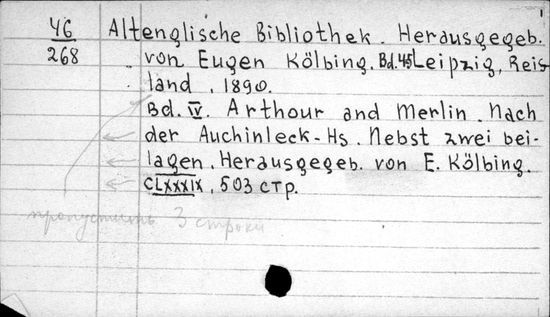 46
268
Altenglische Bibliothek. Herausgegeb.
von Eugen Kölbing. Bd. 45 Leipzig, Reis-
land, 1890.
Bd. IV. Arthour and Merlin. Nach
der Auchinleck-Hs. Nebst zwei bei-
lagen. Herausgegeb. von E. Kölbing.
CLXXXIX, 503 стр.
пропустить 3 строки